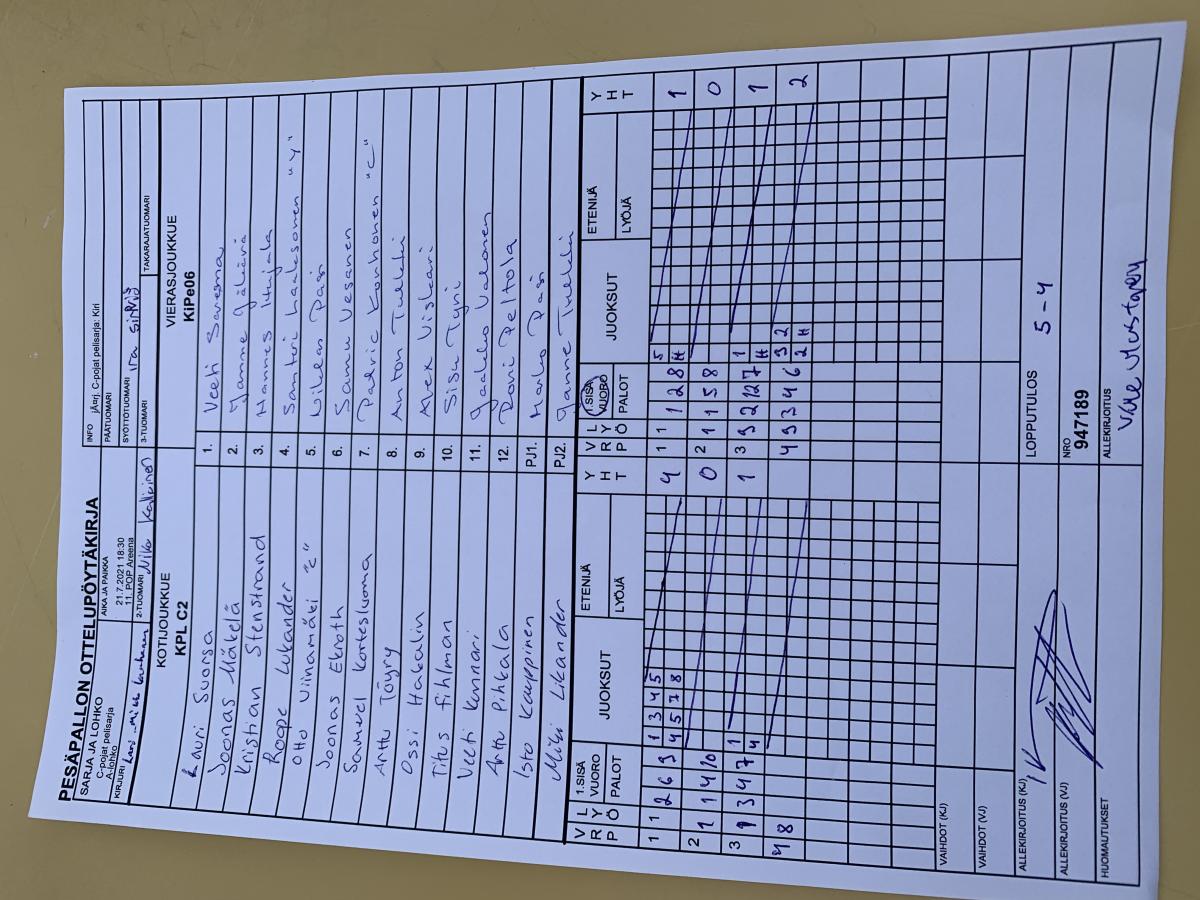 PESÄPALLON OTTELUPÖYTÄKIRJA
SARJA JA LOHKO
C-pojat pelisarja
A-lohko
AIKA JA PAIKKA
21.7.2021 18:30
11. POP Areena
INFO jÄrj. C-pojat pelisarja: Kiri
PÄÄTUOMARI
SYÖTTÖTUOMARI
KIRJURI
2-TUOMARI Niko Kallioinen
3-TUOMARI
TAKARAJATUOMARI
KOTIJOUKKUE
KPL C2
VIERASJOUKKUE
KiPe06
Lauri Suonsa 1. Veeti
Joonas Mäkelä 2. Janne
Kristian Stenstrand 3. Hannes
Roope Lukander 4. Santeri Laaksonen "Y"
Otto Viinamäki "C" 5. Niklas Pasi
Joonas Ekroth 6. Samu Vesanen
Samuel Kortesluoma 7. Patric Korhonen "C"
Anttu Töyry 8. Anton Tulkki
Ossi Hakalin 9.
Titus Fihlman 10. Sisu Tyni
Veeti Kannari 11. Jaakko Valonen
Anttu Pihkala 12. Roni Peltola
Isto Kauppinen PJ1. Marko Pasi
Likander PJ2. Janne Tulkki
V R P L Y Ö 1.SISÄ VUORO PALOT JUOKSUT ETENIJÄ LYÖJÄ Y H T V R P L Y Ö 1.SISÄ VUORO PALOT JUOKSUT ETENIJÄ LYÖJÄ Y H T
1 1 2 6 9 1 3 4 5 4 1 1 1 2 8 5 1
4 5 7 8 H
2 1 1 4 10 0 2 1 1 5 8 0
3 1 3 4 7 1 1 3 3 2 12 7 1 1
4 H
4 8 4 3 3 4 6 3 2 2
2 H
VAIHDOT (KJ)
VAIHDOT (VJ)
ALLEKIRJOITUS (KJ)
LOPPUTULOS 5-4
ALLEKIRJOITUS (VJ)
NRO
947189
HUOMAUTUKSET
ALLEKIRJOITUS